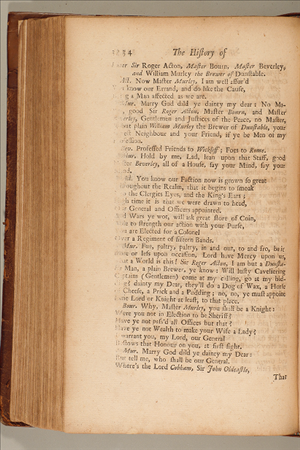 1234 The History of
Enter Sir Roger Acton, Master Bourn, Master Beverley,
and William Murley the Brewer of Dunstable.
Act. Now Master Murley, I am well assur'd
know our Errand, and do like the Cause,
a Man affected as we are.
Mur. Marry God dild ye dainty my dear: No Ma-
good Sir Roger Acton, Master Bourn, and Master
Gentlemen and Justices of the Peace, no Master,
but plain William Murley the Brewer of Dunstable, your
Neighbour and your Friend, if ye be Men of my
Profession.
Bev. Professed Friends to Wickliff; Foes to Rome.
Mur. Hold by me, Lad, lean upon that Staff, good
Beverley, all of a House, say your Mind, say your
Mind.
Act. You know our Faction now is grown so great
Throughout the Realm, that it begins to smoak
the Clergies Eyes, and the King's Ears;
time it is that we were drawn to head,
General and Officers appointed.
And Wars ye wot, will ask great store of Coin,
to strength our action with your Purse,
are Elected for a Colonel
Over a Regiment of fifteen Bands.
Mur. Fue, paltry, paltry, in and out, to and fro, be it
more or less upon occasion. Lord have Mercy upon us,
what a World is this! Sir Roger Acton, I am but a
Man, a plain Brewer, ye know: Will lusty Cavaliering
Captains (Gentlemen) come at my calling, go at my bid-
ding? dainty my Dear, they'll do a Dog of Wax, a Horse
of Cheese, a Prick and a Pudding; no, no, ye must appoint
some Lord or Knight at least, to that place.
Bour. Why, Master Murley, you shall be a Knight:
Were you not in Election to be Sheriff?
Have ye not pass'd all Offices but that?
Have ye not Wealth to make your Wife a Lady?
I warrant you, my Lord, our General
Bestows that Honour on you, at first sight.
Mur. Marry God dild ye dainty my Dear:
But tell me, who shall be our General.
Where's the Lord Cobham, Sir John Oldcastle,
That